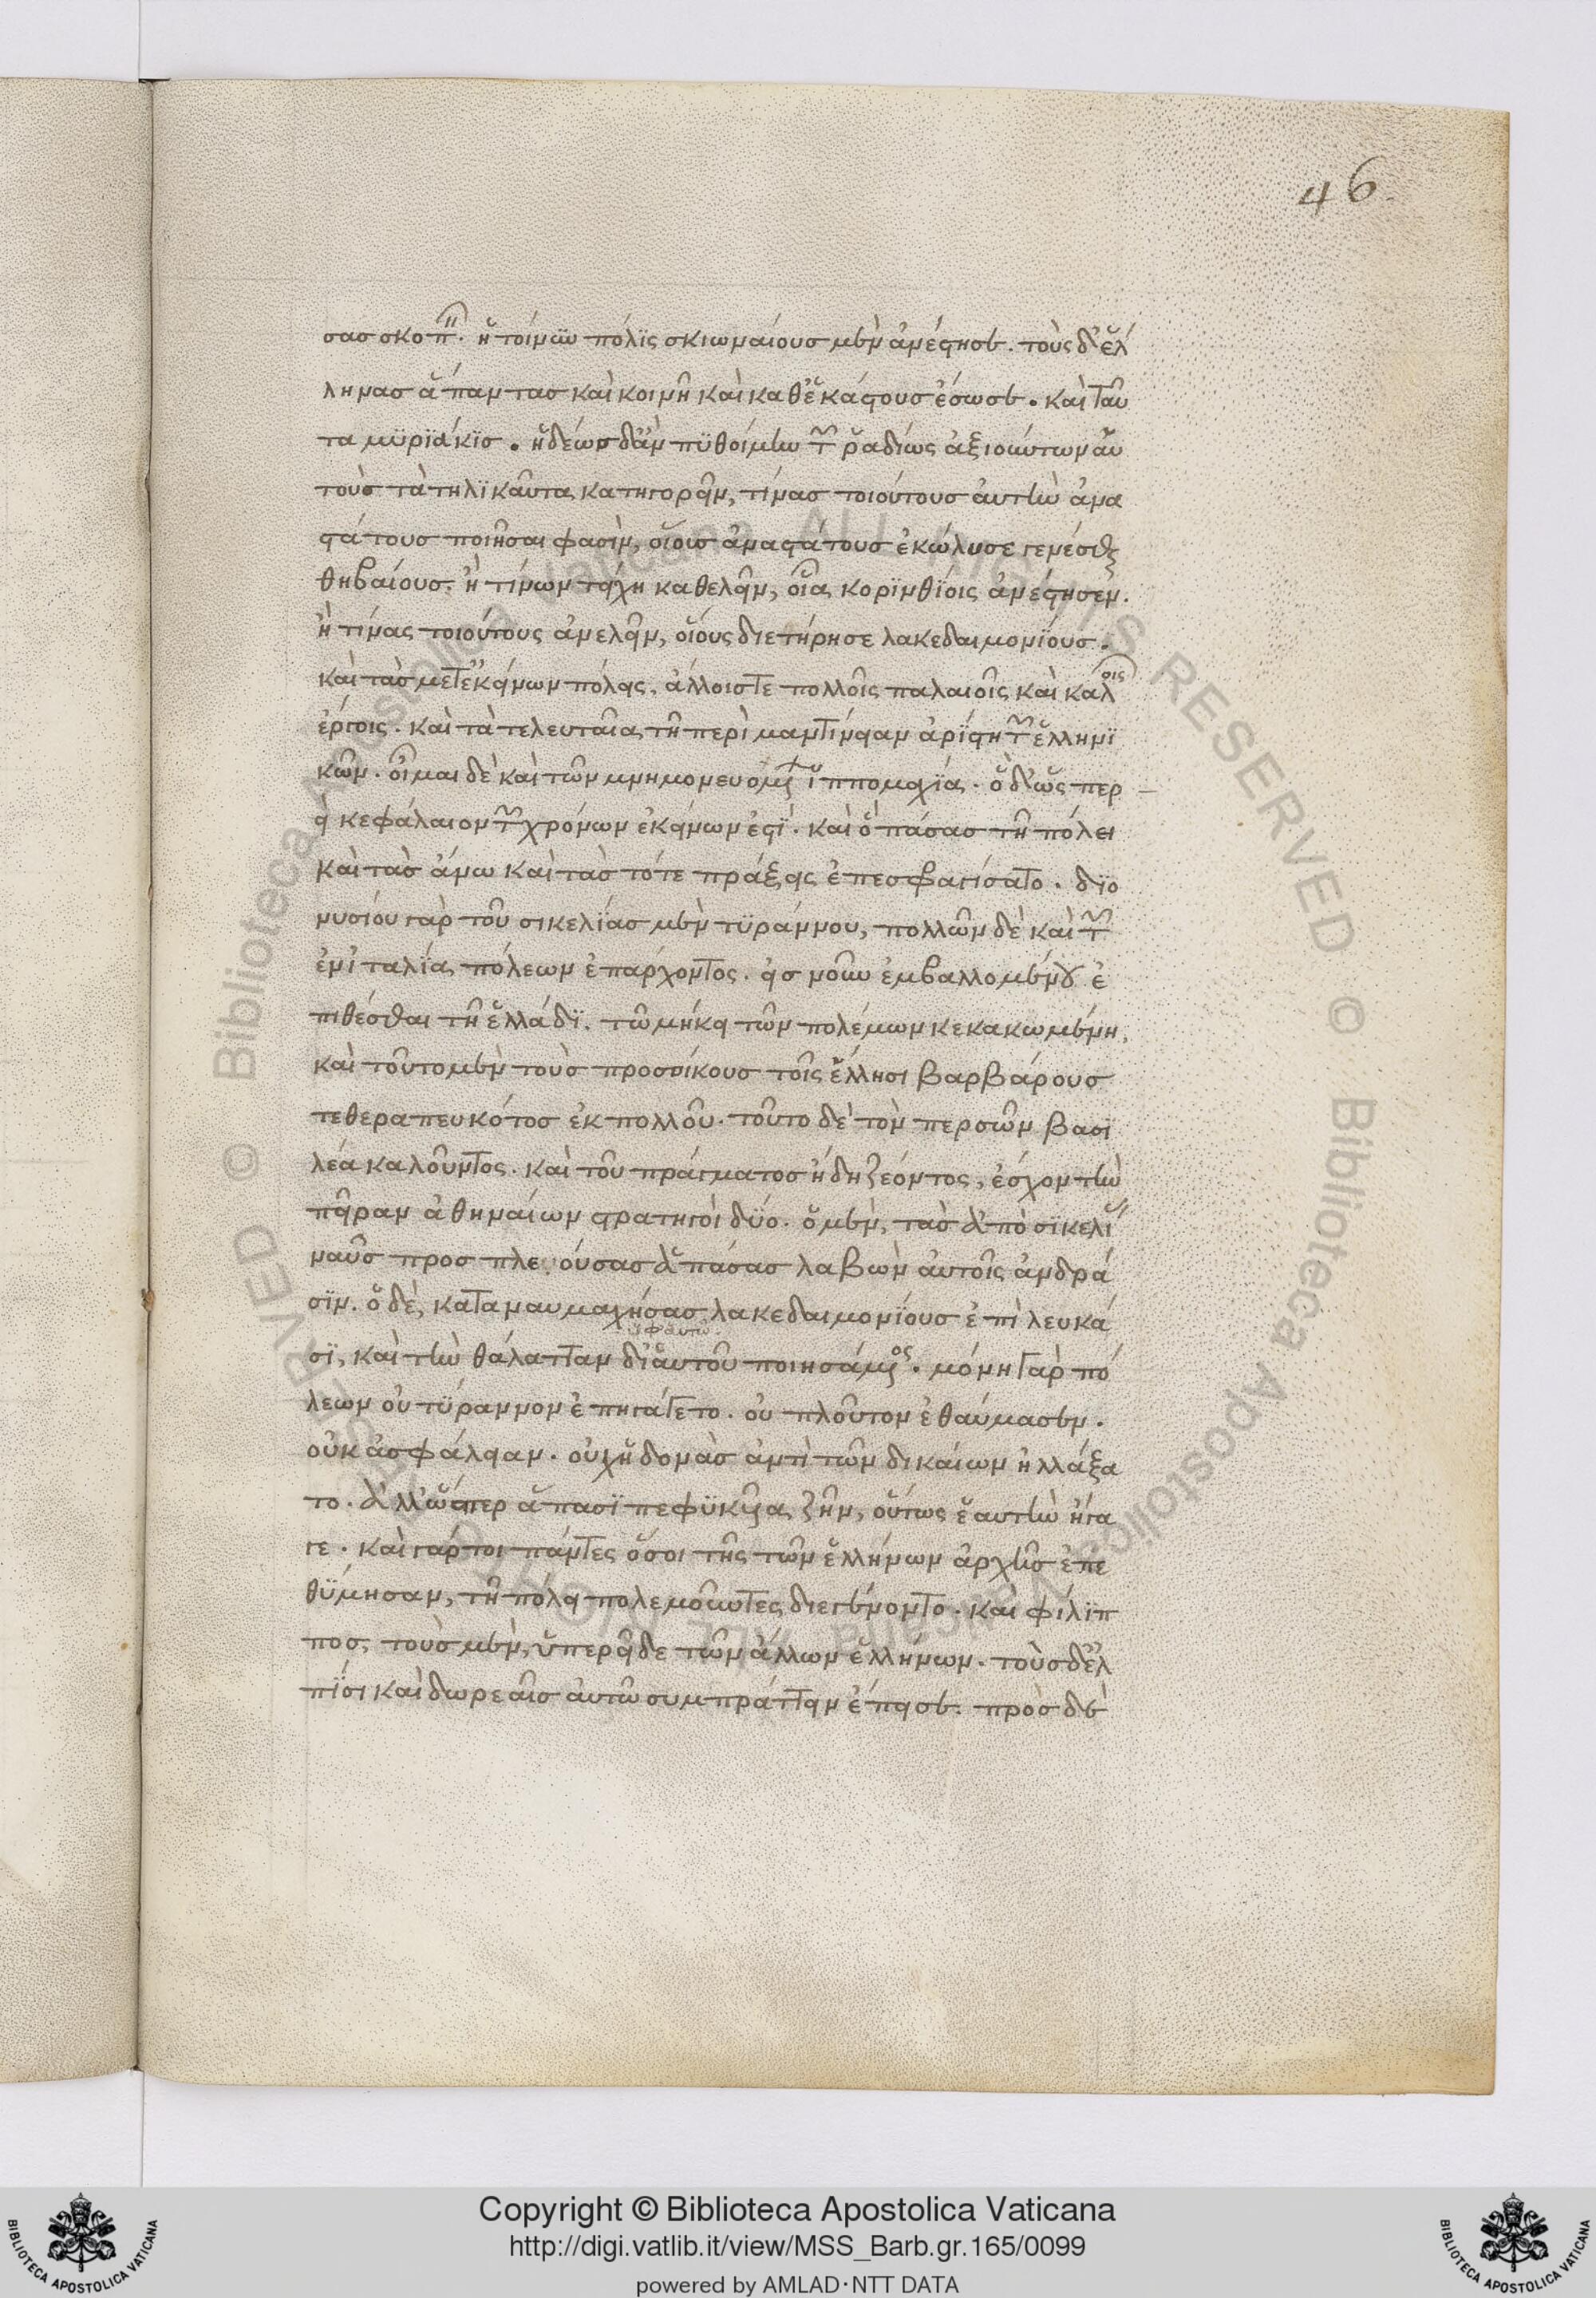 46
σας σκοπ. ἡ τοίνυν πόλϊς σκιωναίους μὲν ἀνέστησε. τοὺς δ' ἑλ
ληνας ἅπαντας καὶ κοινῇ καὶ καθ' ἑκάστους ἔσωσε. καὶ ταῦ
τα μϋρϊάκϊς. ἡδέως δ' ἂν πϋθοίμην τῶν ῥαδίως ἀξιούντων αὐ
τοὺς τὰ τηλϊκαῦτα κατηγορεῖν, τίνας τοιούτους αὐτὴν ἀνα
στάτους ποιῆσαι φασὶν, οἵους ἀναστάτους ἐκώλυσε γενέσθαι
θηβαίους. ἢ τίνων τείχη καθελεῖν, οἷα κορϊνθίοις ἀνέστησεν.
ἢ τίνας τοιούτους ἀνελεῖν, οἵους διετήρησε λακεδαιμονϊους.
καὶ τὰς μετ' ἐκείνων πόλεις, ἄλλοις τε πολλοῖς παλαιοῖς καὶ καλοῖς
ἔργοις. καὶ τὰ τελευταῖα τῇ περὶ μαντίνειαν ἀρίστῃ τῶν ἑλληνϊ
κῶν. οἶμαι δὲ καὶ τῶν μνημονευομένων ἱππομαχϊᾳ. ὃ δ' ὥσπερ
εἰ κεφάλαιον τῶν χρόνων ἐκείνων ἐστϊ. καὶ ὃ πάσας τῇ πόλει
καὶ τὰς ἄνω καὶ τὰς τότε πράξεις ἐπεσφραγίσατο. δϊο
νυσίου γὰρ τοῦ σικελίας μὲν τϋράννου, πολλῶν δὲ καὶ τῶν
ἐν ἰταλίᾳ πόλεων ἐπάρχοντος. εἰς νοῦν ἐμβαλλομένου ἐ
πιθέσθαι τῇ ἑλλάδϊ. τῷ μήκει τῶν πολέμων κεκακωμένη,
καὶ τοῦτο μὲν τοὺς προσοίκους τοῖς ἕλλησι βαρβάρους
τεθεραπευκότος ἐκ πολλοῦ. τοῦτο δὲ τὸν περσῶν βασϊ
λέα καλοῦντος. καὶ τοῦ πράγματος ἤδη ζέοντος, ἔσχον τὴν
πεῖραν ἀθηναίων στρατηγοὶ δϋο. ὁ μὲν, τὰς ἀπὸ σϊκελϊ
ναῦς προς πλεούσας ἁπάσας λαβὼν αὐτοῖς ἀνδρά
σϊν. ὁ δὲ, καταναυμαχήσας λακεδαιμονϊους ἐπὶ λευκά
ὑφ' αὑτῷ
δϊ, καὶ τὴν θάλατταν δι' αὑτοῦ ποιησάμενος. μόνη γὰρ πό
λεων οὐ τϋραννον ἐπηγάγετο. οὐ πλοῦτον ἐθαύμασεν.
οὐκ ἀσφάλειαν. οὐχ ἡδονὰς ἀντὶ τῶν δικαίων ἠλλάξα
το. ἀλλ' ὥσπερ ἅπασϊ πεφϋκυῖα ζῆν, οὕτως ἑαυτὴν ἤγα
γε. καὶ γάρ τοι πάντες ὅσοι τῆς τῶν ἑλλήνων ἀρχῆς ἐπε
θϋμησαν, τῇ πόλει πολεμοῦντες διεγένοντο. καὶ φιλϊπ
πος, τοὺς μὲν, ὑπερεῖδε τῶν ἄλλων ἑλλήνων. τοὺς δ' ἐλ
πϊσι καὶ δωρεαῖς αὐτῷ συμπράττειν ἔπεισε. πρὸς δὲ
Copyright © Biblioteca Apostolica Vaticana
http://digi.vatlib.it/view/MSS_Barb.gr.165/0099
powered by AMLAD·NTT DATA